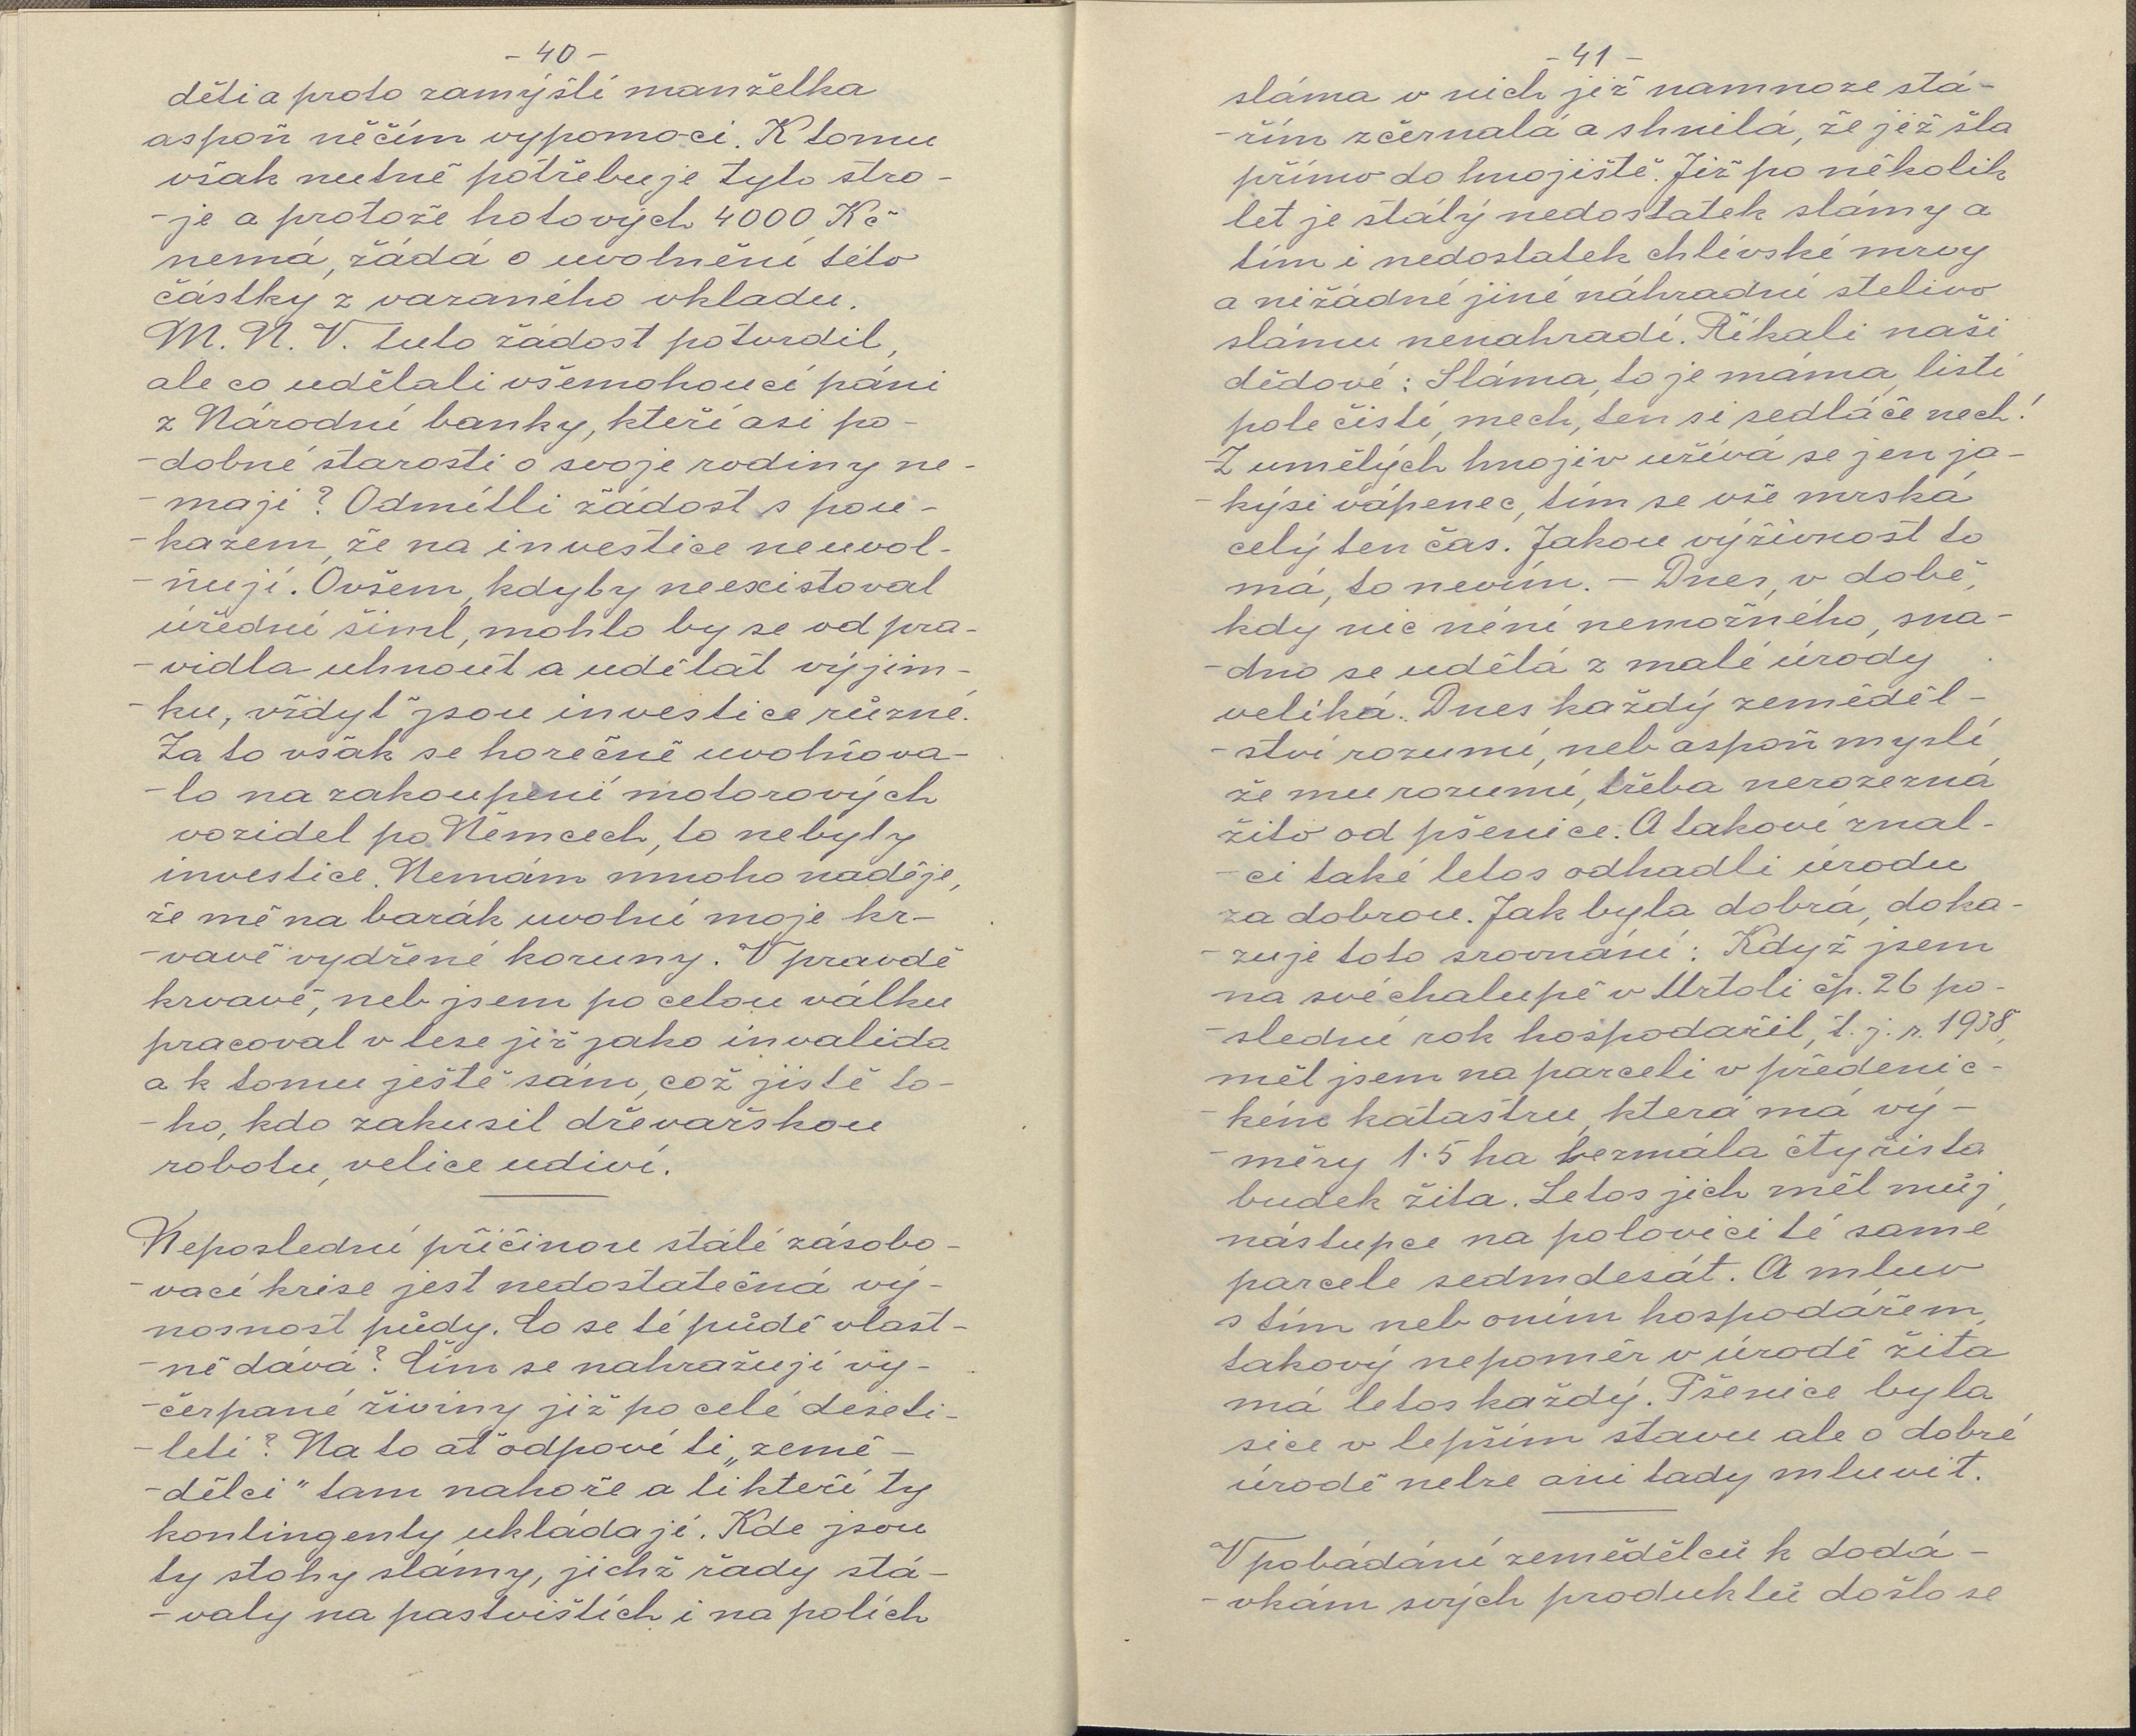 - 40 -
děti a proto zamýšlí manželka
aspoň něčím vypomoci. K tomu
však nutně potřebuje tyto stro-
-je a protože hotových 4000 Kč
nemá, žádá o uvolnění této
částky z vázaného vkladu.
M. N. V. tuto žádost potvrdil,
ale co udělali všemohoucí páni
z Národní banky, kteří asi po-
-dobné starosti o svoje rodiny ne-
-mají? Odmítli žádost s pou-
-kazem, že na investice neuvol-
-ňují. Ovšem, kdyby neexistoval
úřední šiml, mohlo by se od pra-
-vidla uhnout a udělat výjim-
-ku, vždyť jsou investice různé.
Za to však se horečně uvolňova-
-lo na zakoupení motorových
vozidel po Němcech, to nebyly
investice. Nemám mnoho naděje,
že mě na barák uvolní moje kr-
-vavě vydřené koruny. V pravdě
krvavě, neb jsem po celou válku
pracoval v lese již jako invalida
a k tomu ještě sám, což jistě to-
-ho, kdo zakusil dřevařskou
robotu, velice udiví.
Neposlední příčinou stálé zásobo-
-vací krise jest nedostatečná vý-
nosnost půdy. Co se té půdě vlast-
-ně dává? Čím se nahražují vy-
-čerpané živiny již po celé deseti-
-letí? Na to ať odpoví ti „země-
-dělci" tam nahoře a ti kteří ty
kontingenty ukládají. Kde jsou
ty stohy slámy, jichž řady stá-
-valy na pastvištích i na polích
- 41 -
sláma v nich již namnoze stá-
-řím zčernalá a shnilá, že již šla
přímo do hnojiště. Již po několik
let je stálý nedostatek slámy a
tím i nedostatek chlévské mrvy
a nižádné jiné náhradní stelivo
slámu nenahradí. Říkali naši
dědové: Sláma, to je máma, listí
pole čistí, mech, ten si sedláče nech!
Z umělých hnojiv užívá se jen ja-
-kýsi vápenec, tím se vše mrská
celý ten čas. Jakou výživnost to
má, to nevím. - Dnes, v době,
kdy nic není nemožného, sna-
-dno se udělá z malé úrody
veliká. Dnes každý zeměděl-
-ství rozumí, neb aspoň myslí
že mu rozumí, třeba nerozezná
žito od pšenice. A takoví znal-
-ci také letos odhadli úrodu
za dobrou. Jak byla dobrá, doka-
-zuje toto srovnání: Když jsem
na své chalupě v Mrtoli čp. 26 po-
-slední rok hospodařil, t. j. r. 1938,
měl jsem na parceli v předenic-
-kém katastru, která má vý-
-měry 1·5 ha bezmála čtyřista
budek žita. Letos jich měl můj
nástupce na polovici té samé
parcele sedmdesát. A mluv
s tím neb oním hospodářem,
takový nepoměr v úrodě žita
má letos každý. Pšenice byla
sice v lepším stavu ale o dobré
úrodě nelze ani tady mluvit.
V pobádání zemědělců k dodá-
-vkám svých produktů došlo se